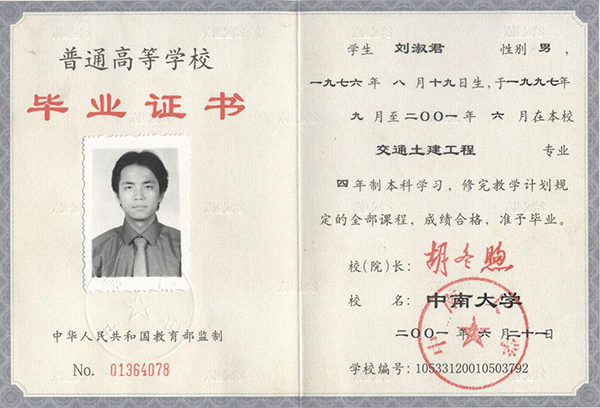 普通高等学校
毕业证书
中华人民共和国教育部监制
No. 01364078
学生 刘淑君 性别 男，
一九七六年 八 月十九日生，于一九九七年
九 月至二〇〇一年 六 月在本校
交通土建工程 专业
四年制本科学习，修完教学计划规
定的全部课程，成绩合格，准予毕业。
校(院)长：胡冬煦
校 名：中南大学
二〇〇一年 六 月二十一日
学校编号：10533120010503792